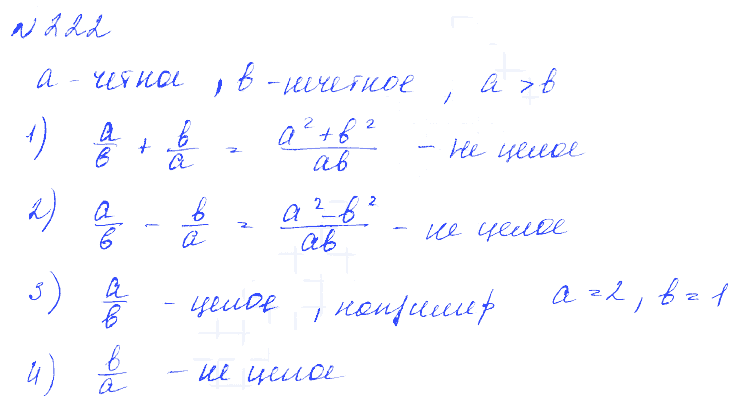 №222
a - четное, в - нечетное, a > в
1) a/в + в/a = (a² + в²)/aв - не целое
2) a/в - в/a = (a² - в²)/aв - не целое
3) a/в - целое, например a = 2, в = 1
4) в/a - не целое